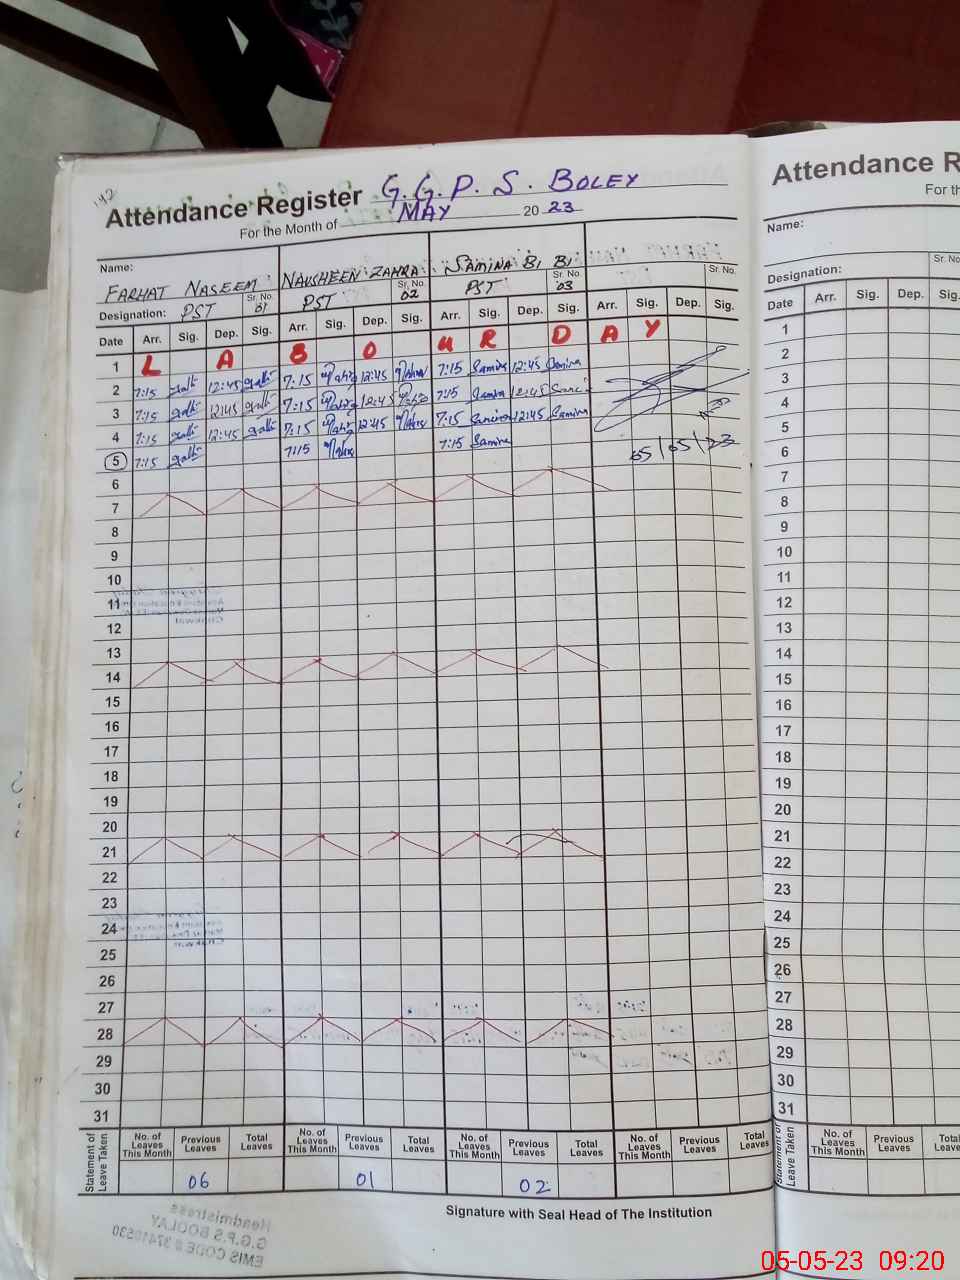 142
Attendance Register G.G.P.S. BOLEY
For the Month of MAY 2023
Name: FARHAT NASEEM NAUSHEEN ZAHRA SAMINA BI BI
Sr. No. 01 Sr. No. 02 Sr. No. 03 Sr. No.
Designation: PST PST PST
Date Arr. Sig. Dep. Sig. Arr. Sig. Dep. Sig. Arr. Sig. Dep. Sig. Arr. Sig. Dep. Sig.
1 L A B O U R D A Y
2 7:15 12:45 7:15 12:45 7:15 Samina 12:45 Samina
3 7:15 12:45 7:15 12:45 7:15 Samina 12:45
4 7:15 12:45 7:15 12:45 7:15 Samina 12:45 Samina
5 7:15 7:15 7:15 Samina
05/05/23
6
7
8
9
10
11
12
13
14
15
16
17
18
19
20
21
22
23
24
25
26
27
28
29
30
31
Statement of Leave Taken
No. of Leaves This Month Previous Leaves Total Leaves No. of Leaves This Month Previous Leaves Total Leaves No. of Leaves This Month Previous Leaves Total Leaves No. of Leaves This Month Previous Leaves Total Leaves
06 01 02
Signature with Seal Head of The Institution
Headmistress
G.G.P.S BOOLAY
EMIS CODE # 37410530
Attendance R
For th
Name:
Sr. No.
Designation:
Date Arr. Sig. Dep. Sig.
1
2
3
4
5
6
7
8
9
10
11
12
13
14
15
16
17
18
19
20
21
22
23
24
25
26
27
28
29
30
31
Statement of Leave Taken
No. of Leaves This Month Previous Leaves
05-05-23 09:20